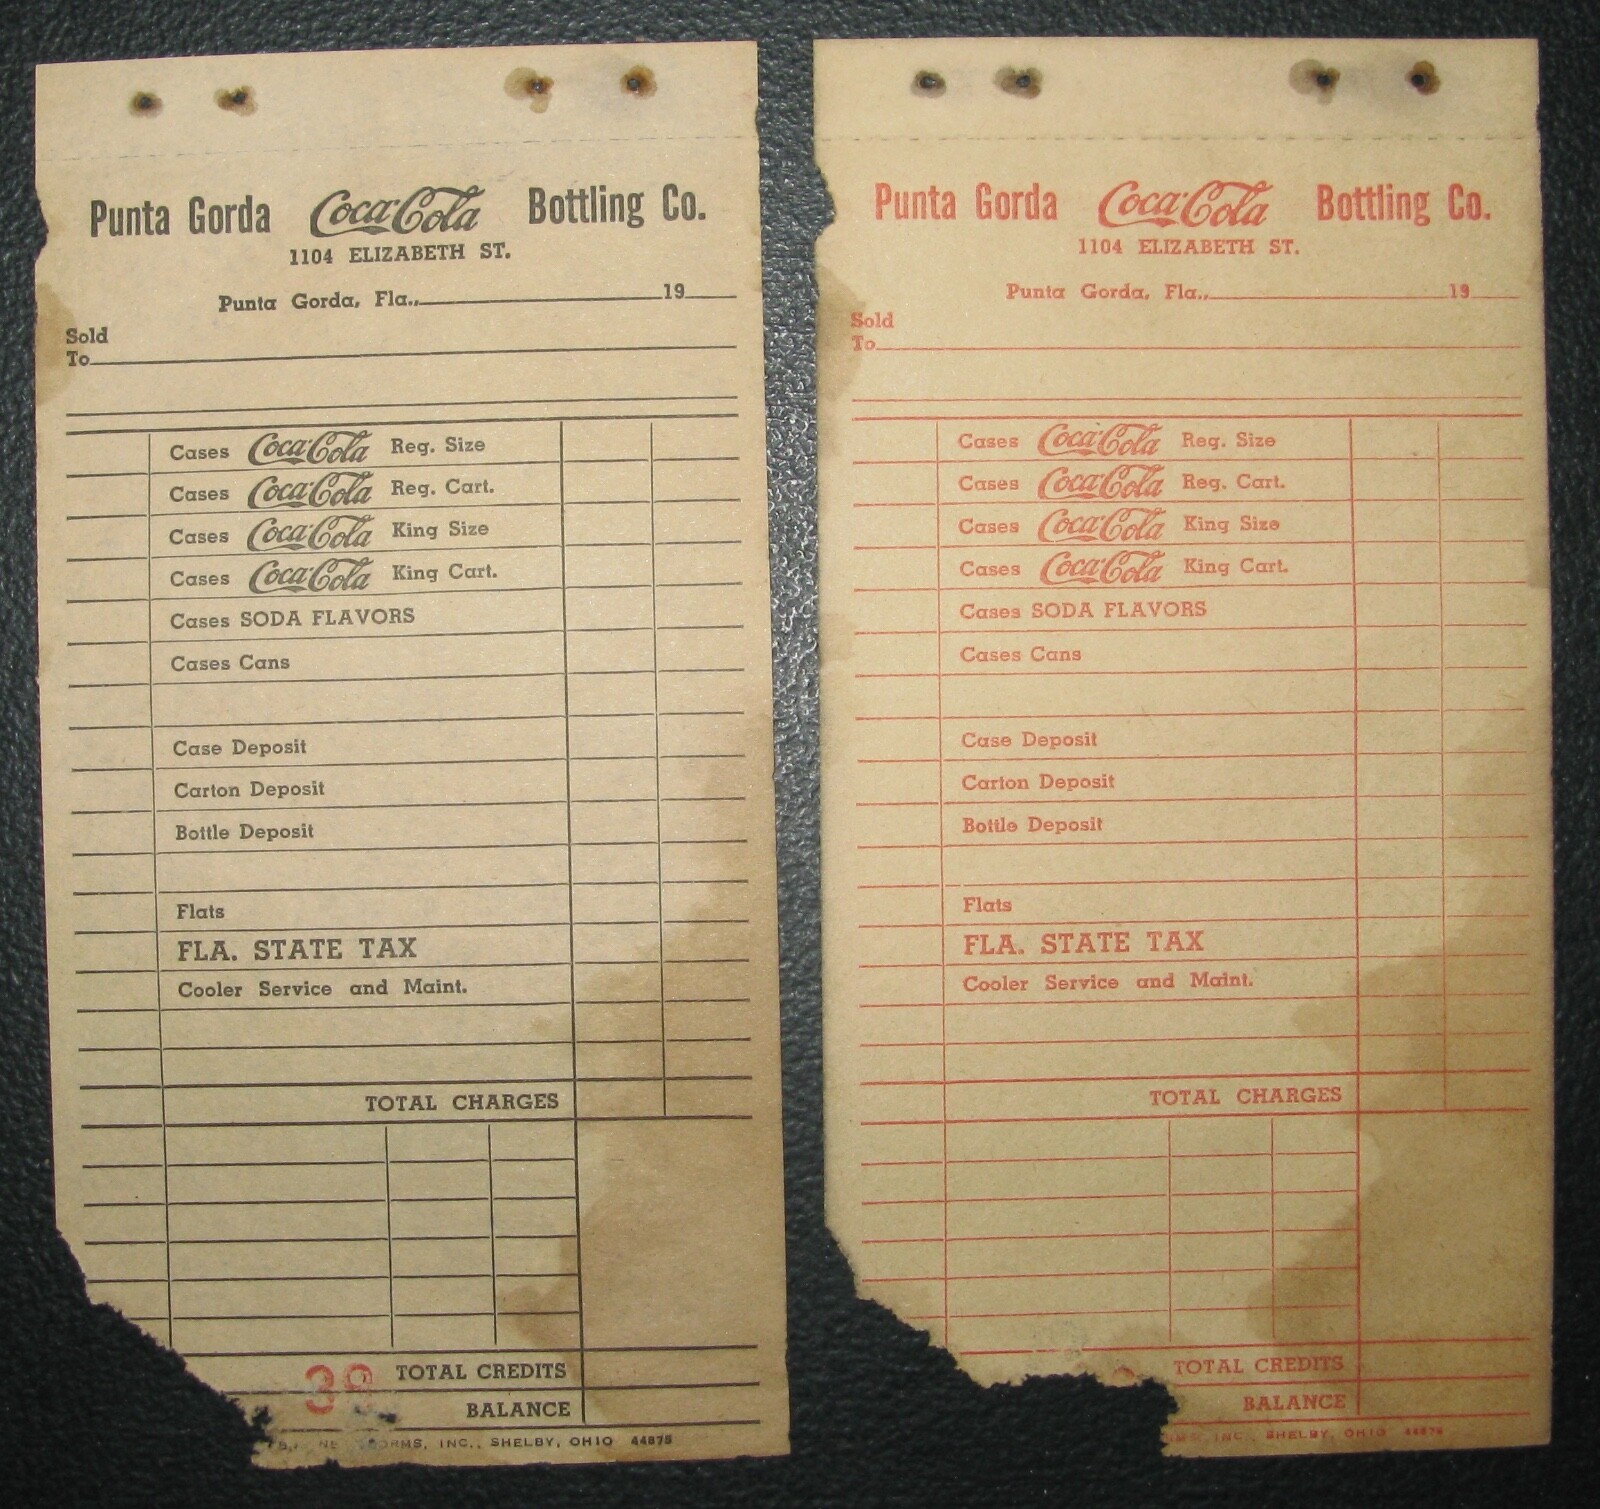 Punta Gorda Coca-Cola Bottling Co.
1104 ELIZABETH ST.
Punta Gorda, Fla., 19
Sold
To
Cases Coca-Cola Reg. Size
Cases Coca-Cola Reg. Cart.
Cases Coca-Cola King Size
Cases Coca-Cola King Cart.
Cases SODA FLAVORS
Cases Cans
Case Deposit
Carton Deposit
Bottle Deposit
Flats
FLA. STATE TAX
Cooler Service and Maint.
TOTAL CHARGES
39 TOTAL CREDITS
BALANCE
INC., SHELBY, OHIO 44875
Punta Gorda Coca-Cola Bottling Co.
1104 ELIZABETH ST.
Punta Gorda, Fla., 19
Sold
To
Cases Coca-Cola Reg. Size
Cases Coca-Cola Reg. Cart.
Cases Coca-Cola King Size
Cases Coca-Cola King Cart.
Cases SODA FLAVORS
Cases Cans
Case Deposit
Carton Deposit
Bottle Deposit
Flats
FLA. STATE TAX
Cooler Service and Maint.
TOTAL CHARGES
TOTAL CREDITS
BALANCE
INC., SHELBY, OHIO 44875